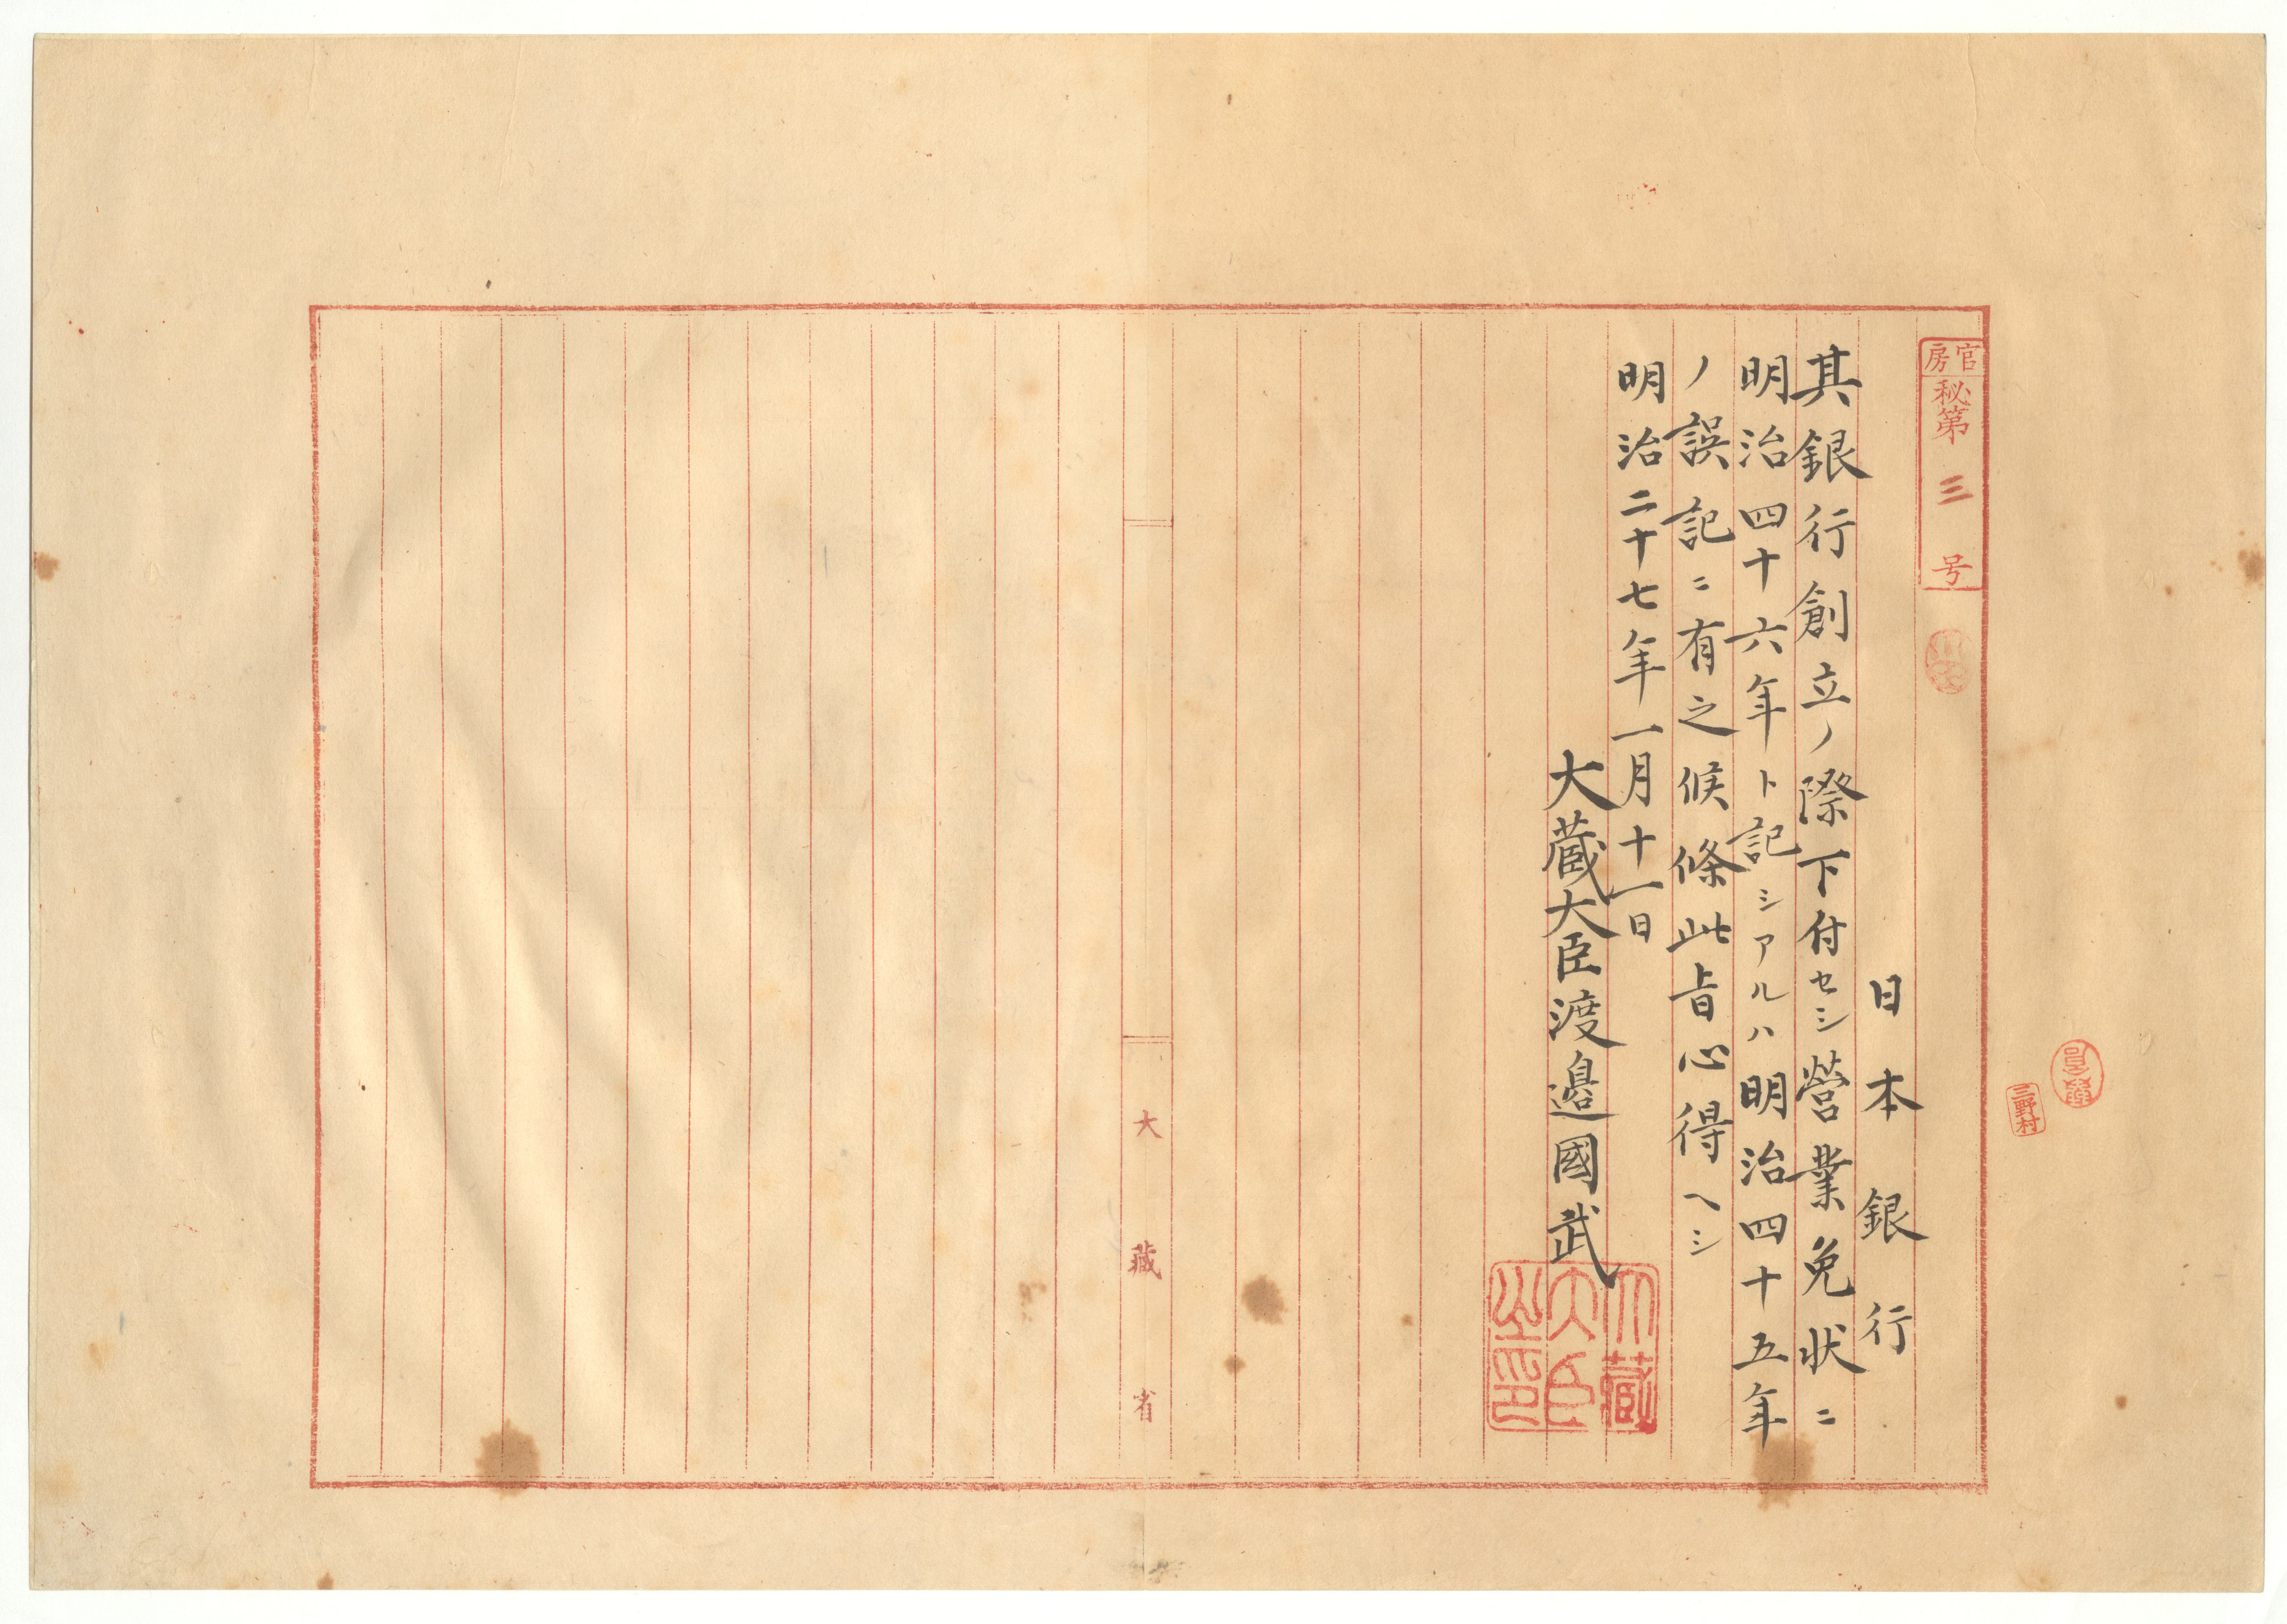 官房
秘第三号
日本銀行
其銀行創立ノ際下付セシ營業免状ニ
明治四十六年ト記シアルハ明治四十五年
ノ誤記ニ有之候條此旨心得ヘシ
明治二十七年一月十一日
大蔵大臣渡邉國武
大藏大臣之印
三野村
大藏省